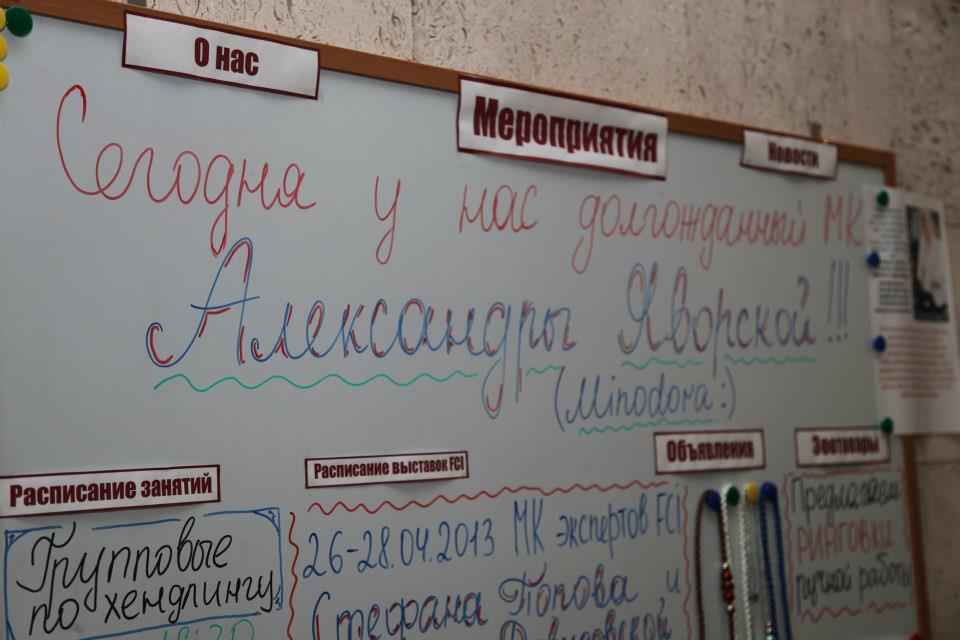 О нас
Мероприятия
Новости
Сегодня у нас долгожданный МК
Александры Яворской!!!
(Minodora:)
Расписание занятий
Расписание выставок FCI
Объявления
Зоотовары
Групповые
по хендлингу
26-28.04.2013 МК экспертов FCi
Стефана Попова и
Предлагаем
РИНГОВКИ
ручной работы